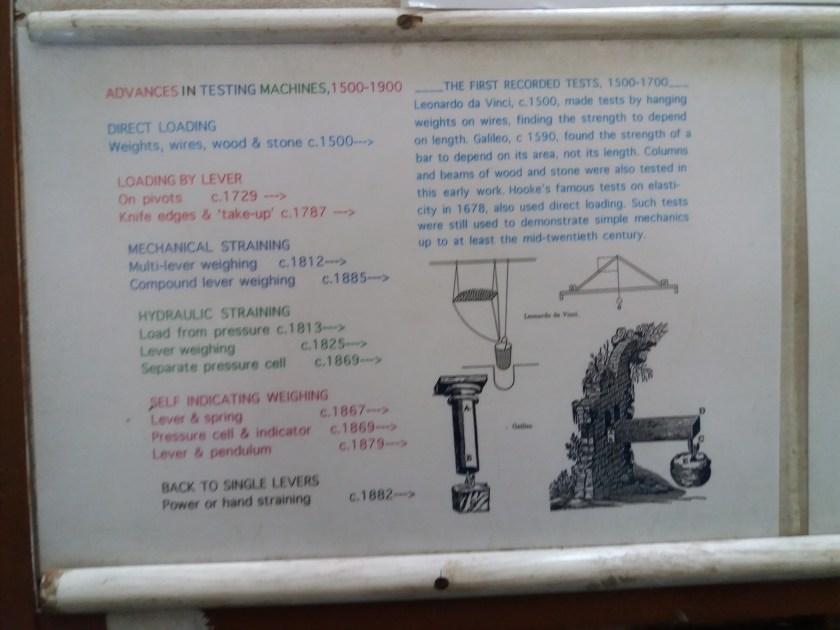 ADVANCES IN TESTING MACHINES, 1500-1900
DIRECT LOADING
Weights, wires, wood & stone c.1500--->
LOADING BY LEVER
On pivots c.1729 --->
Knife edges & 'take-up' c.1787 --->
MECHANICAL STRAINING
Multi-lever weighing c.1812--->
Compound lever weighing c.1885--->
HYDRAULIC STRAINING
Load from pressure c.1813--->
Lever weighing c.1825--->
Separate pressure cell c.1869--->
SELF INDICATING WEIGHING
Lever & spring c.1867--->
Pressure cell & indicator c.1869--->
Lever & pendulum c.1879--->
BACK TO SINGLE LEVERS
Power or hand straining c.1882--->
____THE FIRST RECORDED TESTS, 1500-1700___
Leonardo da Vinci, c.1500, made tests by hanging
weights on wires, finding the strength to depend
on length. Galileo, c 1590, found the strength of a
bar to depend on its area, not its length. Columns
and beams of wood and stone were also tested in
this early work. Hooke's famous tests on elasti-
city in 1678, also used direct loading. Such tests
were still used to demonstrate simple mechanics
up to at least the mid-twentieth century.
Leonardo da Vinci.
A
B
Galileo
D
C
E